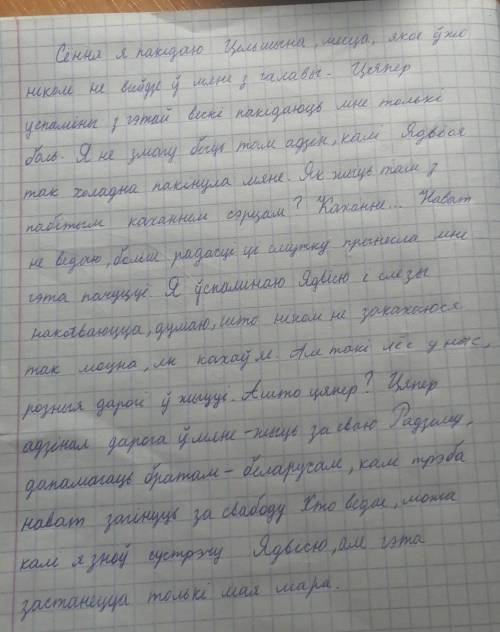 Сёння я пакідаю Цельшына, месца, якое ўжо
ніколі не выйдзе ў мяне з галавы. Цяпер
успаміны з гэтай вёскі пакідаюць мне толькі
боль. Я не змагу быць там адзін, калі Ядвіся
так холадна пакінула мяне. Як жыць там з
пабітым каханнем сэрцам? Каханне... Нават
не ведаю, больш радасці ці смутку прынесла мне
гэта пачуццё. Я ўспамінаю Ядвісю і слёзы
накатваюцца, думаю, што ніколі не закахаюся
так моцна, як кахаў я. Але такі лёс у нас,
розныя дарогі ў жыцці. А што цяпер? Цяпер
адзіная дарога ў мяне - жыць за сваю Радзіму,
дапамагаць братам - беларусам, калі трэба
нават загінуць за свабоду. Хто ведае, можа
калі я зноў сустрэчу Ядвісю, але гэта
застанецца толькі мая мара.